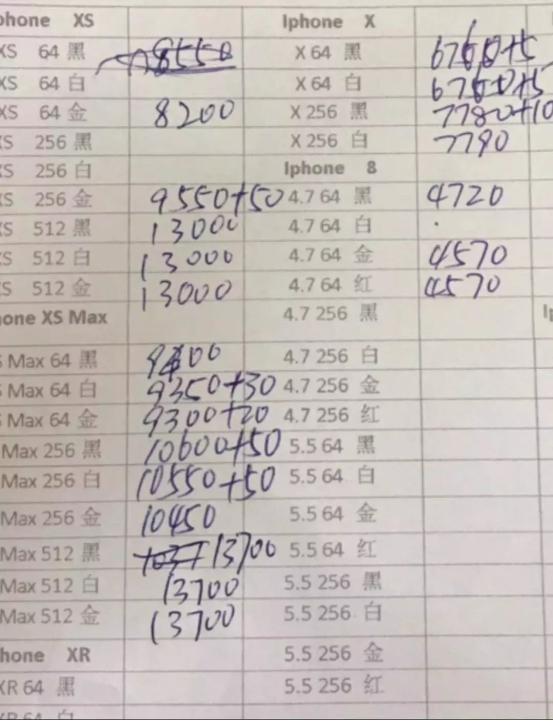 phone XS Iphone X
XS 64 黑 8550 X 64 黑
XS 64 白 X 64 白
XS 64 金 8200 X 256 黑 7780+10
XS 256 黑 X 256 白 7790
XS 256 白 Iphone 8
XS 256 金 9550+50 4.7 64 黑 4720
XS 512 黑 13000 4.7 64 白
XS 512 白 13000 4.7 64 金 4570
XS 512 金 13000 4.7 64 红 4570
hone XS Max 4.7 256 黑
S Max 64 黑 4.7 256 白
S Max 64 白 9350+30 4.7 256 金
S Max 64 金 9300+20 4.7 256 红
Max 256 黑 10600+50 5.5 64 黑
Max 256 白 10550+50 5.5 64 白
Max 256 金 10450 5.5 64 金
Max 512 黑 13700 5.5 64 红
Max 512 白 13700 5.5 256 黑
Max 512 金 13700 5.5 256 白
hone XR 5.5 256 金
XR 64 黑 5.5 256 红
XR 64 白